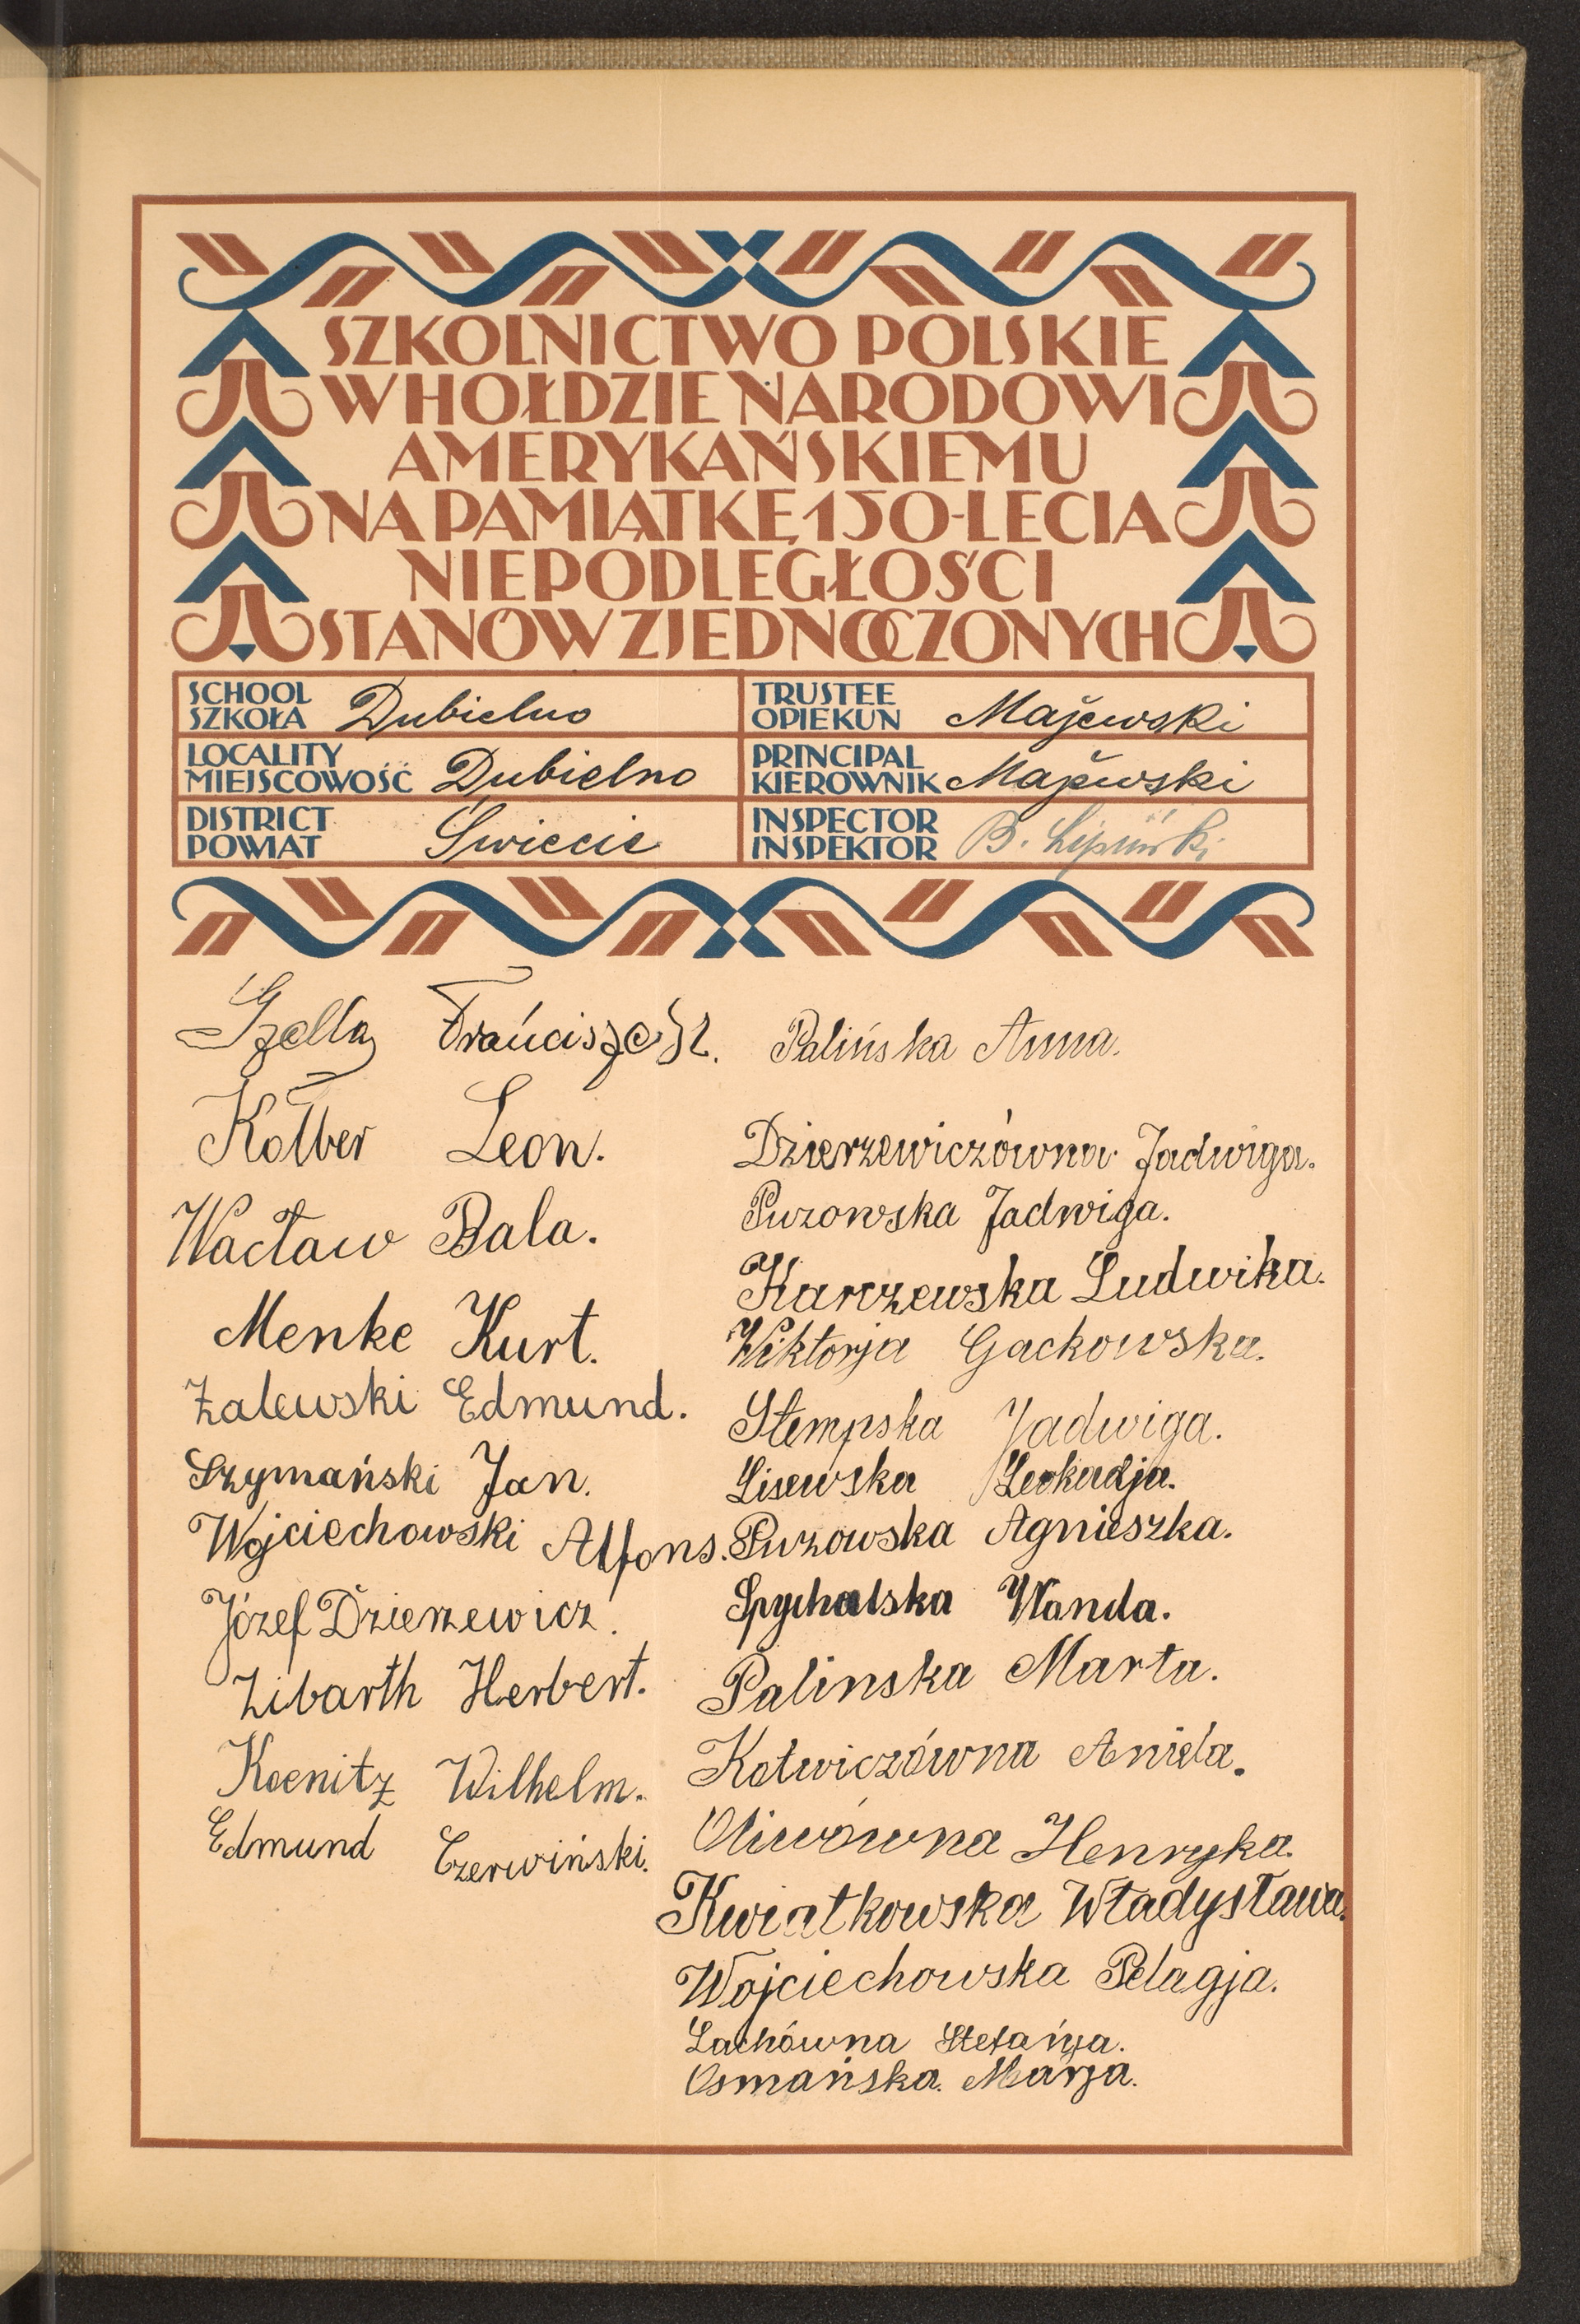 SZKOLNICTWO POLSKIE
W HOŁDZIE NARODOWI
AMERYKAŃSKIEMU
NA PAMIĄTKĘ 150-LECIA
NIEPODLEGŁOŚCI
STANÓW ZJEDNOCZONYCH
SCHOOL
SZKOŁA Dubielno
TRUSTEE
OPIEKUN Majewski
LOCALITY
MIEJSCOWOŚĆ Dubielno
PRINCIPAL
KIEROWNIK Majewski
DISTRICT
POWIAT Swiecie
INSPECTOR
INSPEKTOR B. Lipiński
Gzella Franciszek.
Kolber Leon.
Wacław Bala.
Menke Kurt.
Zalewski Edmund.
Szymański Jan.
Wojciechowski Alfons.
Józef Dzierzewicz.
Zibarth Herbert.
Koenitz Wilhelm.
Edmund Czerwiński.
Palińska Anna.
Dzierzewiczówna Jadwiga.
Puzowska Jadwiga.
Karczewska Ludwika.
Wiktorja Gackowska.
Stempska Jadwiga.
Lisewska Leokadja.
Puzowska Agnieszka.
Spychalska Wanda.
Palinska Marta.
Kotwiczówna Aniela.
Oliwówna Henryka.
Kwiatkowska Władysława.
Wojciechowska Pelagja.
Lachówna Stefanja.
Osmańska. Marja.